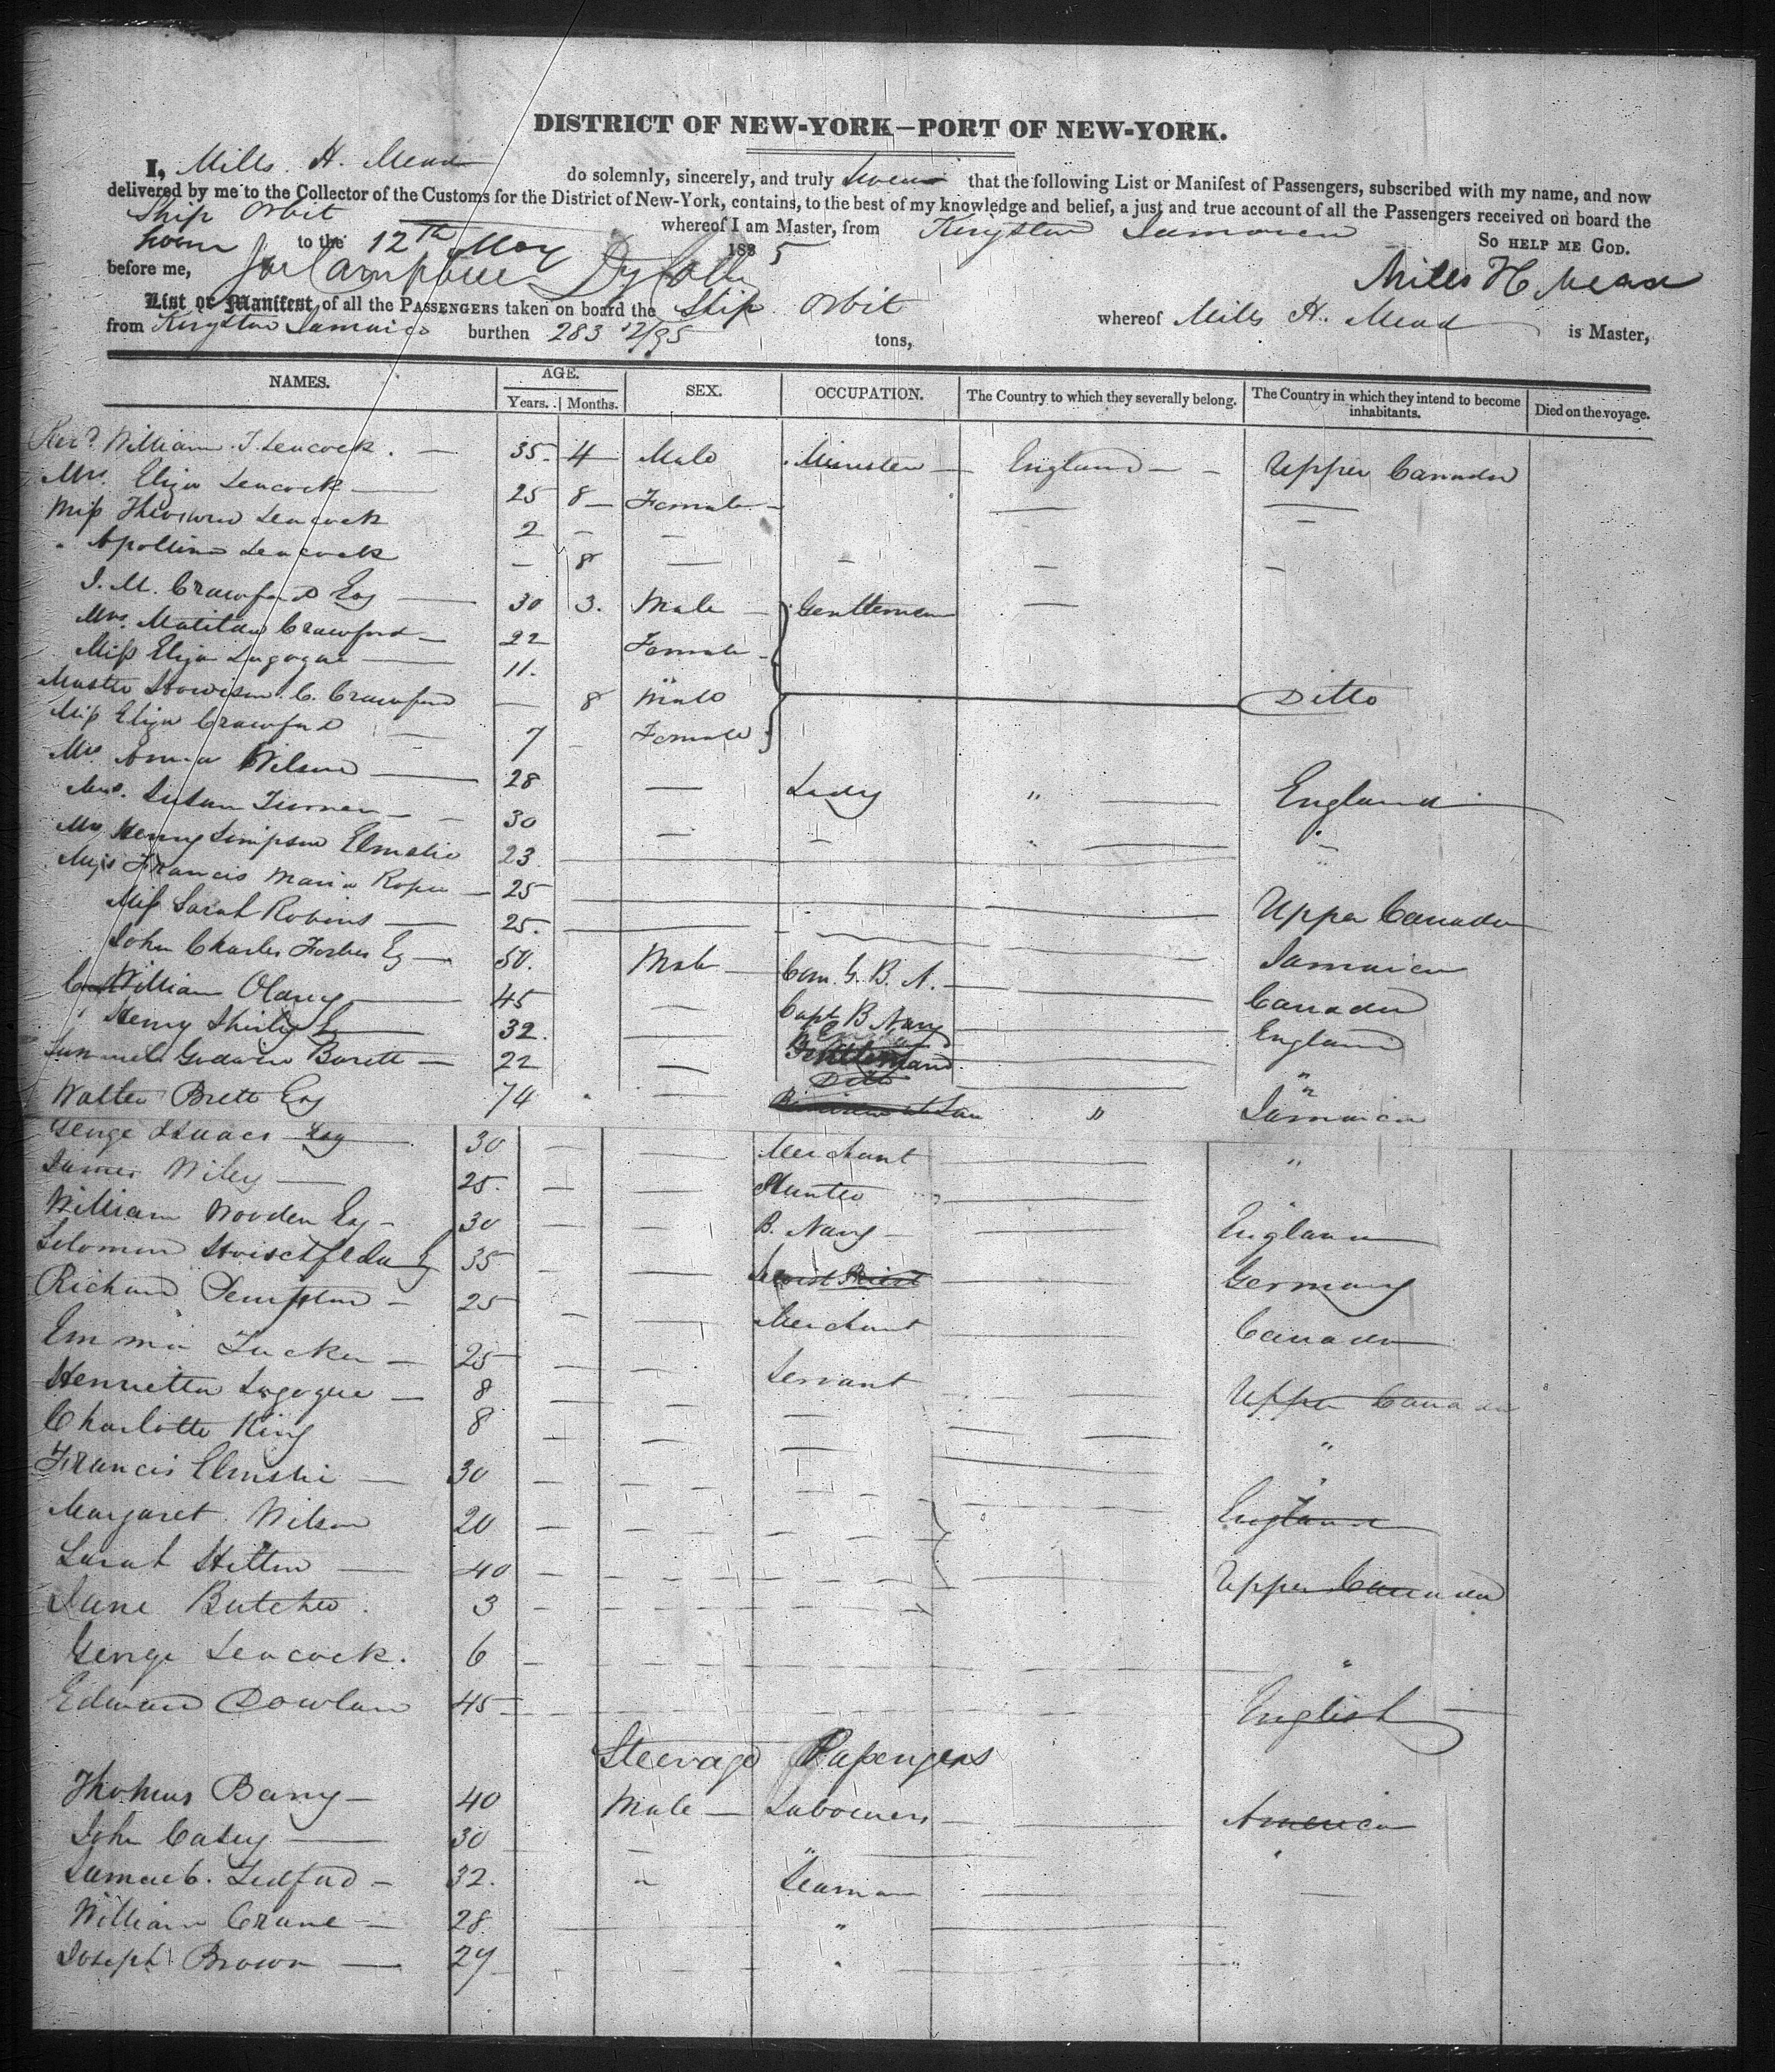 DISTRICT OF NEW-YORK—PORT OF NEW-YORK.
I, Mills H. Mead do solemnly, sincerely, and truly swear that the following List or Manifest of Passengers, subscribed with my name, and now
delivered by me to the Collector of the Customs for the District of New-York, contains, to the best of my knowledge and belief, a just and true account of all the Passengers received on board the
Ship Orbit whereof I am Master, from Kingston Jamaica
Sworn to the 12th May 1835 So help me God.
before me, Mills H Mead
List or Manifest, of all the Passengers taken on board the Ship Orbit whereof Mills H. Mead is Master,
from Kingston Jamaica burthen 283 12/95 tons,
NAMES. AGE. Years. Months. SEX. OCCUPATION. The Country to which they severally belong. The Country in which they intend to become inhabitants. Died on the voyage.
Revd. William T. Leacock. — 35. 4 Male Minister — England — - Upper Canada
Mrs. Eliza Leacock — 25 8 — Female - — —
Miss Leacock 2 - - -
" Apollina Leacock — 8 — - — -
J. M. Crawford Esq — 30 3. Male — Gentleman —
Mrs. Matilda Crawford — 22 Female -
Miss Eliza Lagogue — 11. "
Master C. Crawford — 8 Male Ditto
Miss Eliza Crawford — 7 - Female
Mrs Anna Wilson — 28 — Lady " — England
Mrs. Susan Turner - - 30 — - " — "
Mrs Henry Simpson Elmslie 23 — "
Miss Francis Maria Roper — 25 — Upper Canada
Miss Sarah Robins — 25. —
John Charles Forbes Esq — 50. Male — Com. G. B. A. — Jamaica
William Oldrey — 45 — Capt B Navy — Canada
" Henry Shirly Esq — 32. — England
Samuel Goodwin Barett — 22 — Ditto — "
Walter Brett Esq 74 " — " Jamaica
George Isaacs Esq — 30 — — Merchant — "
James Wiley — 25. — — Planter — "
William Wooden Esq - 30 — — B. Navy — — England
Solomon 35 - — — Germany
Richard — 25 — — Merchant — Canada
Emma Tucker — 25 — — Servant Upper Canada
Henrietta Lagogue — 8 — — — — "
Charlotte King 8 — — — — "
Francis Elmslie — 30 — — —
Margaret Wilson 20 — — — England
Sarah Hilton — 40 — — — — Upper Canada
Jane Butcher. 3 — — —
George Leacock. 6 — — "
Edward Dowlan 45 — — English —
Steerage Passengers
Thomas Barry — 40 Male — Labourers — America
John Casey — 30 — " — "
Samuel C. Tedford — 32. " Seaman — —
William Crane — 28 — " —
Joseph Brown — 27 — " — "